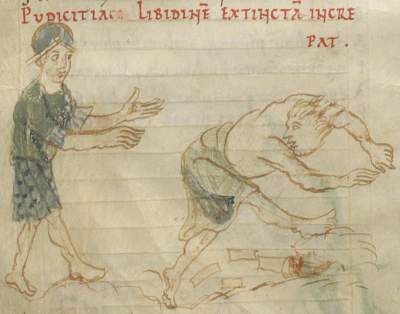 PVDICITIA LIBIDINĒ EXTINCTĀ INCRE
PAT.